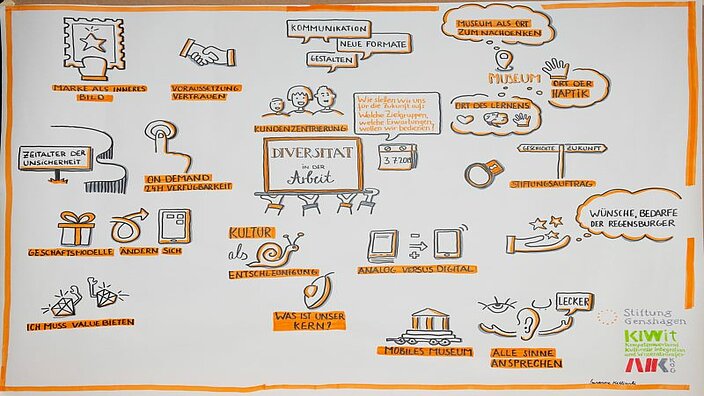 MARKE ALS INNERES
BILD
VORAUSSETZUNG
VERTRAUEN
KOMMUNIKATION
NEUE FORMATE
GESTALTEN
MUSEUM ALS ORT
ZUM NACHDENKEN
MUSEUM
ORT DER
HAPTIK
ORT DES LERNENS
KUNDENZENTRIERUNG
Wie stellen wir uns
für die Zukunft auf?
Welche Zielgruppen,
welche Erwartungen
wollen wir bedienen?
ZEITALTER DER
UNSICHERHEIT
ON DEMAND
24H VERFÜGBARKEIT
DIVERSITÄT
IN DER
Arbeit
GESCHICHTE
ZUKUNFT
STIFTUNGSAUFTRAG
GESCHÄFTSMODELLE ÄNDERN SICH
KULTUR
als
ENTSCHLEUNIGUNG
ANALOG VERSUS DIGITAL
WÜNSCHE, BEDARFE
DER REGENSBURGER
ICH MUSS VALUE BIETEN
WAS IST UNSER
KERN?
MOBILES MUSEUM
LECKER
ALLE SINNE
ANSPRECHEN
Stiftung
Genshagen
KIWit